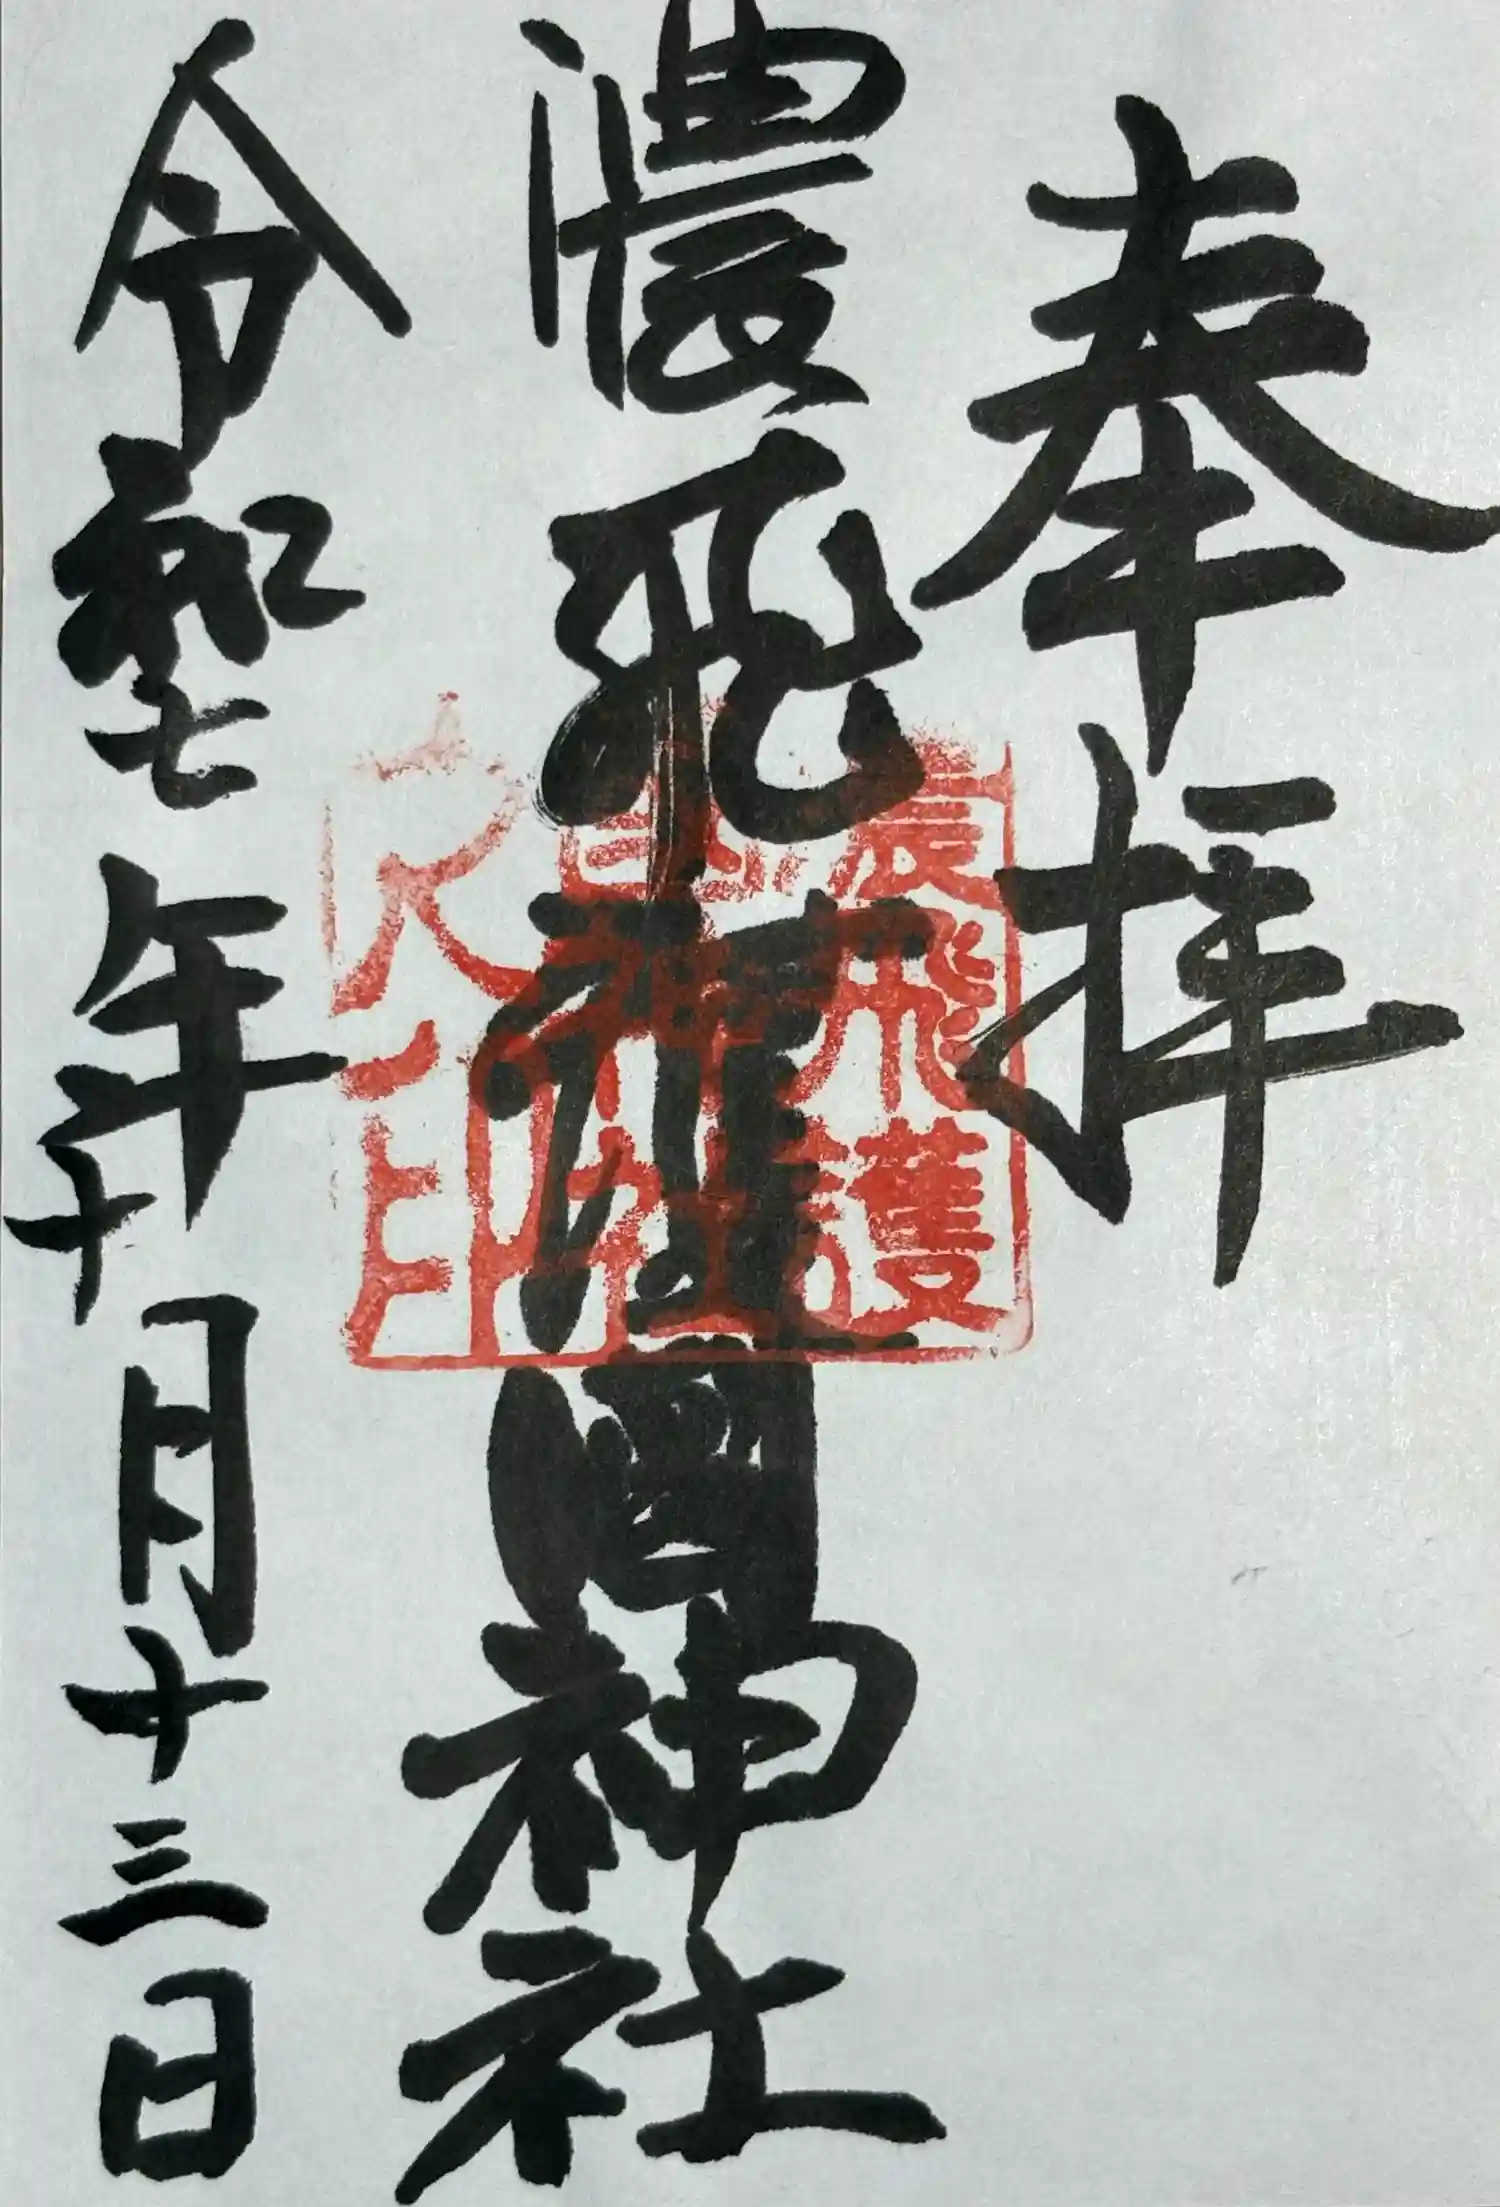 奉拝
濃飛護國神社
濃飛護
國神社
之印
令和七年十月十三日